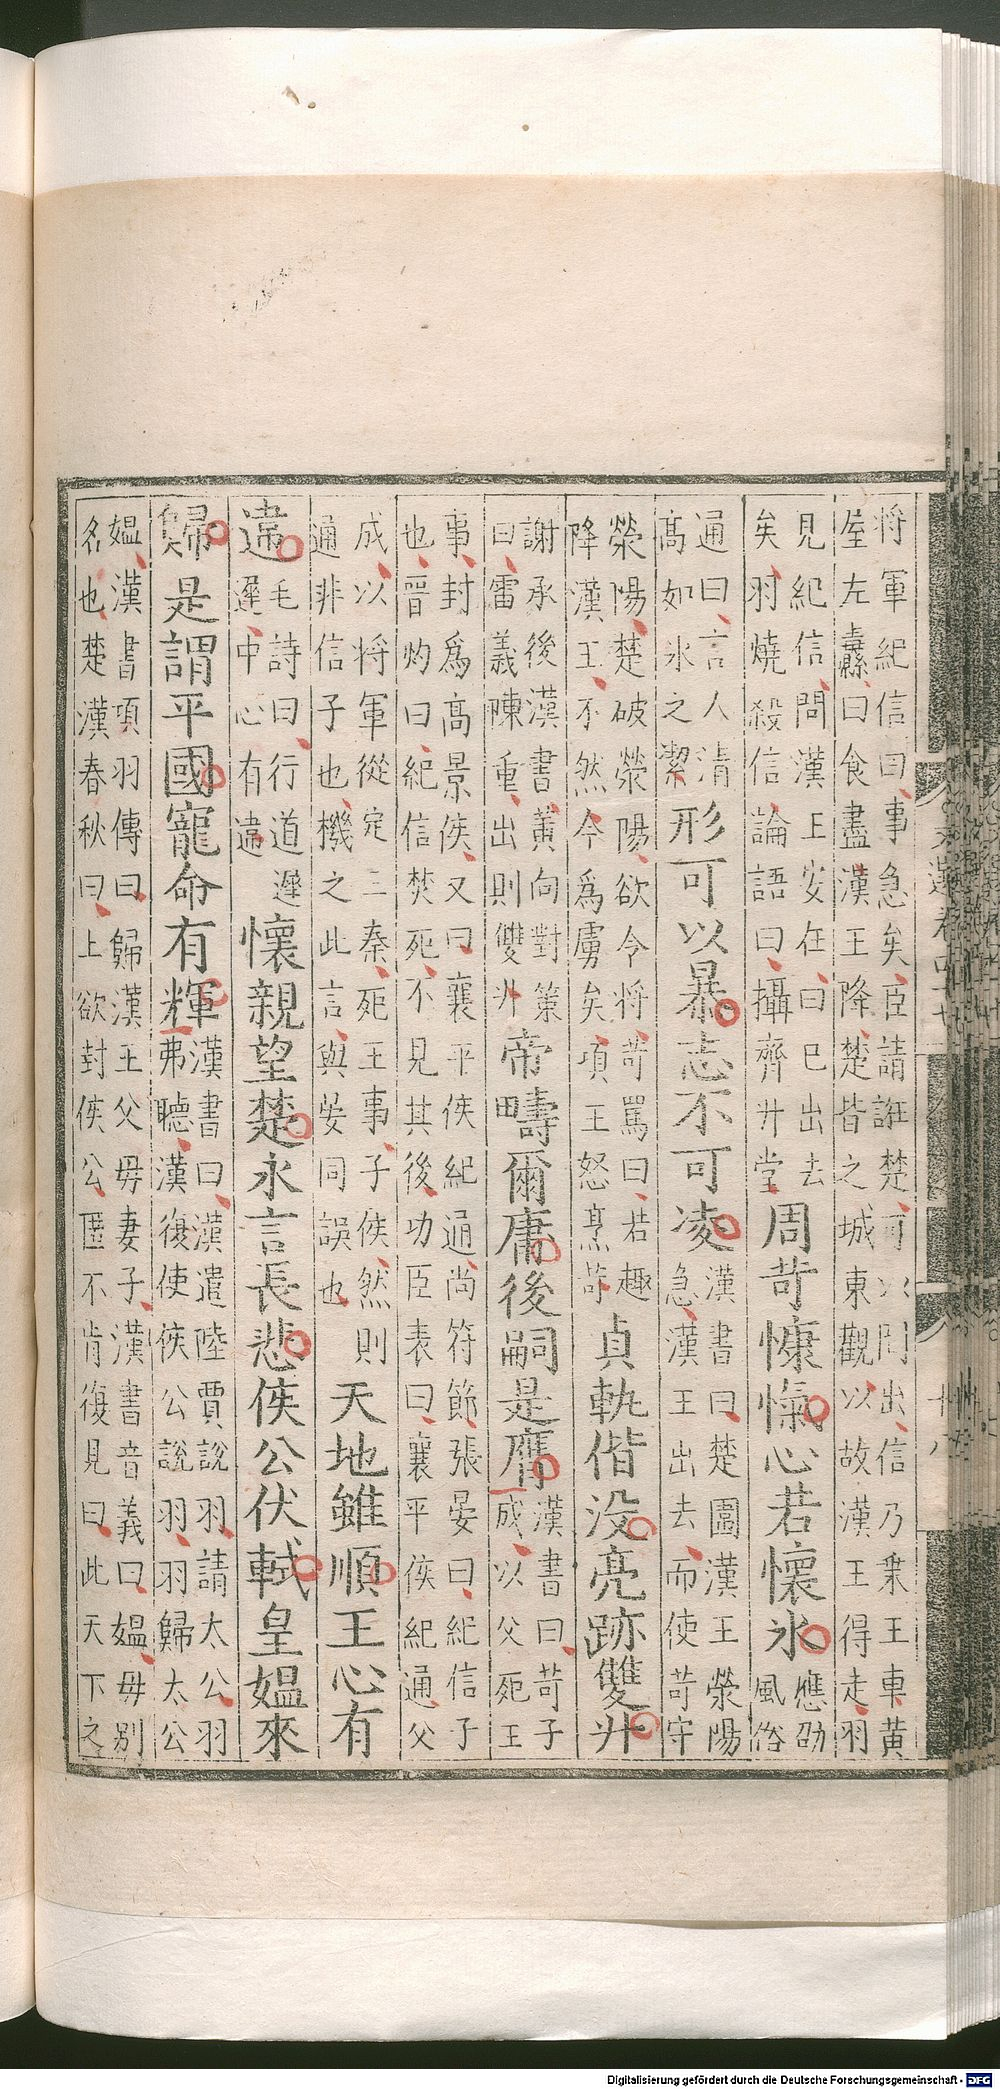 将軍紀信曰事急矣臣請誑楚可以間出信乃乗王車黄
屋左纛曰食盡漢王降楚皆之城東觀以故漢王得走羽
見紀信問漢王安在曰已出去
矣羽燒殺信論語曰攝齊升堂
周苛慷愾心若懷氷
應劭
風俗
通曰言人清
髙如氷之潔
形可以暴志不可凌
漢書曰楚圍漢王滎陽
急漢王出去而使苛守
滎陽楚破滎陽欲令将苛罵曰若趣
降漢王不然今為虜矣項王怒烹苛
貞軌偕没亮跡雙升
謝承後漢書黄向對策
曰雷義陳重出則雙升
帝疇爾庸後嗣是膺
漢書曰苛子
成以父死王
事封為髙景侯又曰襄平侯紀通尚符節張晏曰紀信子
也晋灼曰紀信焚死不見其後功臣表曰襄平侯紀通父
成以将軍從定三秦死王事子侯然則
通非信子也機之此言與晏同誤也
天地雖順王心有
違
毛詩曰行道遲
遲中心有違
懷親望楚永言長悲侯公伏軾皇媼來
歸是謂平國寵命有輝
漢書曰漢遣陸賈説羽請太公羽
弗聽漢復使侯公説羽羽歸太公
媼漢書項羽傳曰歸漢王父母妻子漢書音義曰媼母别
名也楚漢春秋曰上欲封侯公匿不肯復見曰此天下之
Digitalisierung gefördert durch die Deutsche Forschungsgemeinschaft - DFG